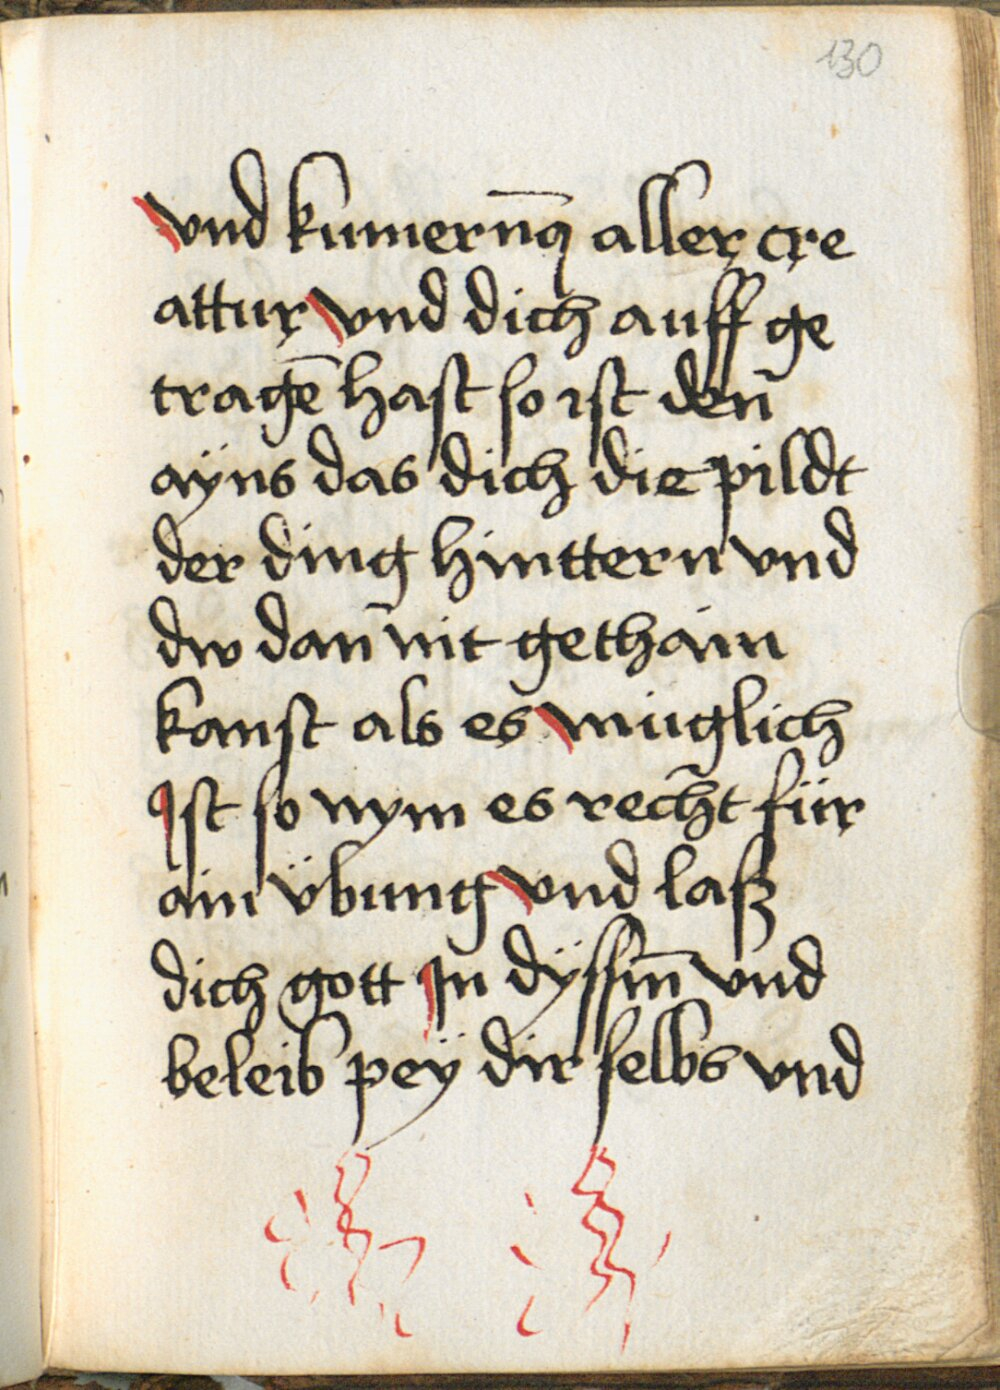 130
vnd kumernū̄g aller cre
attur vnd dich auff ge
tragē hast so ist den̄
aÿns das dich die pildt
der ding hinttern vnd
dw dan̄ nit gethain
kanst als es müglich
Ist so nym es recht für
ain übung vnd laß
dich gott In dÿssm̄ vnd
beleib peÿ dir selbs vnd